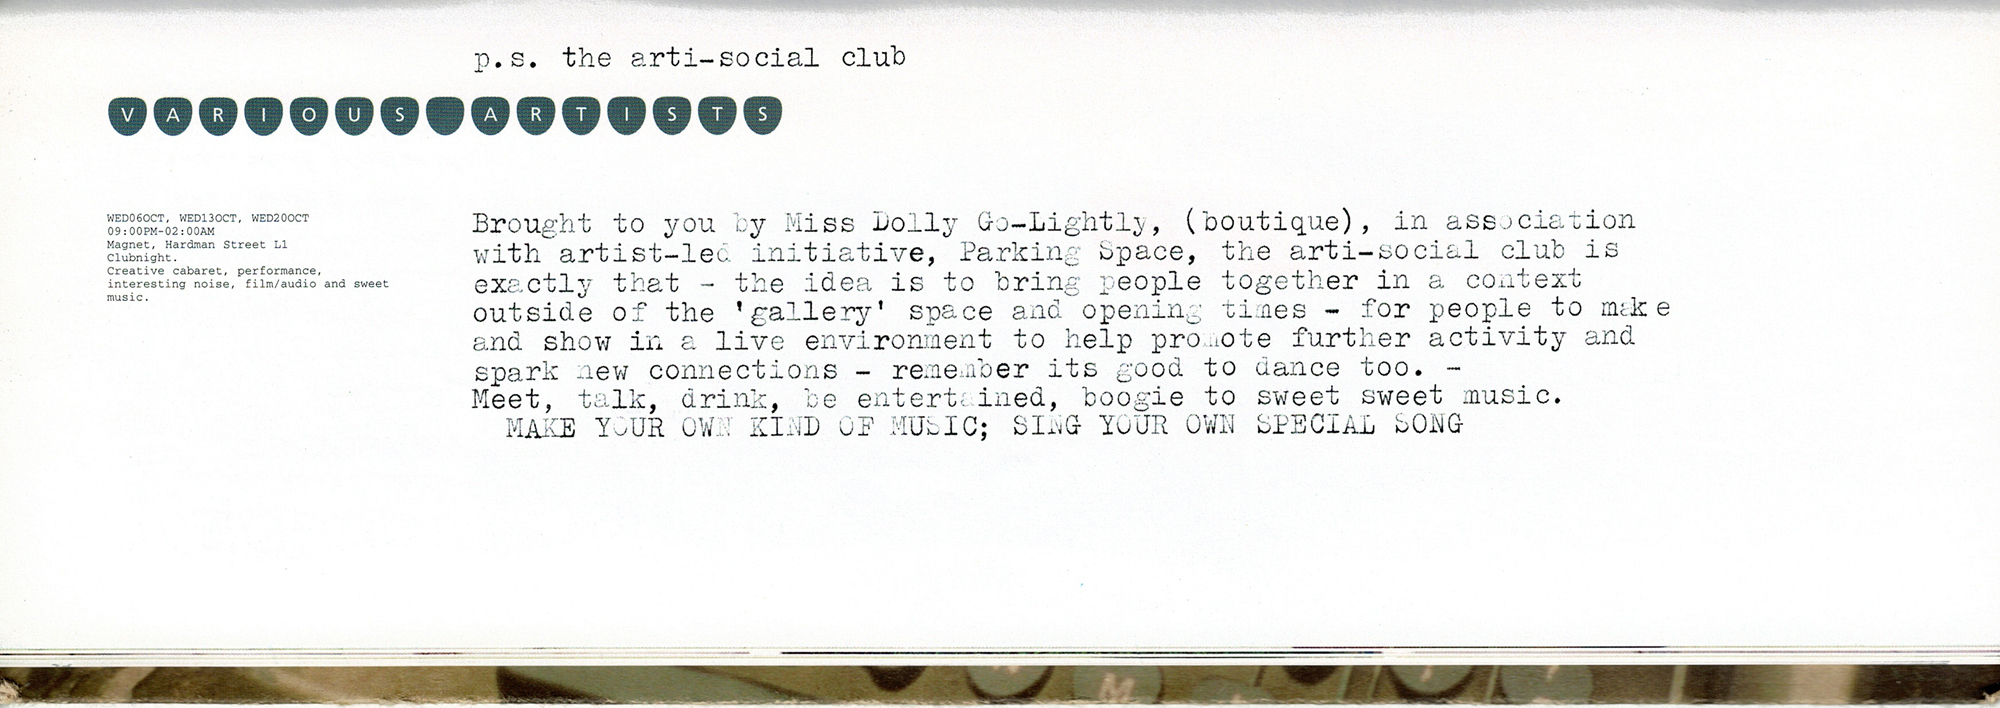 p.s. the arti-social club
VARIOUS ARTISTS
WED06OCT, WED13OCT, WED20OCT
09:00PM-02:00AM
Magnet, Hardman Street L1
Clubnight.
Creative cabaret, performance,
interesting noise, film/audio and sweet
music.
Brought to you by Miss Dolly Go-Lightly, (boutique), in association
with artist-led initiative, Parking Space, the arti-social club is
exactly that - the idea is to bring people together in a context
outside of the 'gallery' space and opening times - for people to make
and show in a live environment to help promote further activity and
spark new connections - remember its good to dance too. -
Meet, talk, drink, be entertained, boogie to sweet sweet music.
MAKE YOUR OWN KIND OF MUSIC; SING YOUR OWN SPECIAL SONG
M